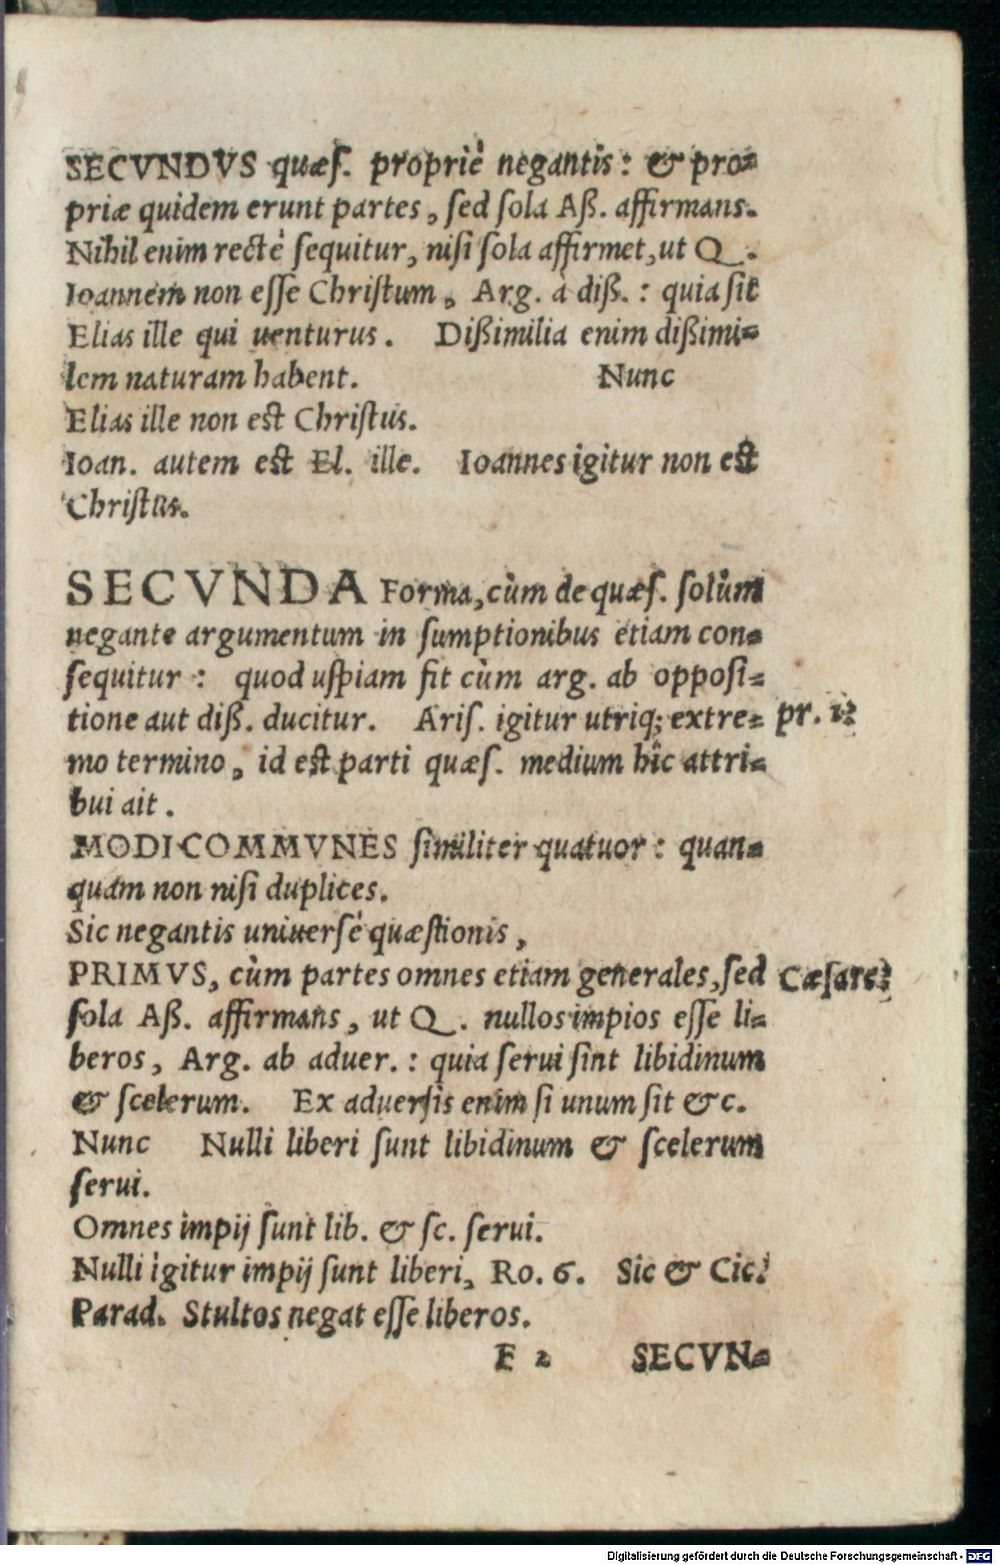 SECVNDVS quæſ. propriè negantis: & pro-
priæ quidem erunt partes, ſed ſola Aß. affirmans.
Nihil enim rectè ſequitur, niſi ſola affirmet, ut Q.
Ioannem non eſſe Chriſtum, Arg. à diß.: quia ſit
Elias ille qui uenturus. Dißimilia enim dißimi-
lem naturam habent. Nunc
Elias ille non eſt Chriſtus.
Ioan. autem eſt El. ille. Ioannes igitur non eſt
Chriſtus.
SECVNDA Forma, cùm de quæſ. ſolùm
negante argumentum in ſumptionibus etiam con-
ſequitur: quod uſpiam fit cùm arg. ab oppoſi-
tione aut diß. ducitur. Ariſ. igitur utriq; extre- pr. 1?
mo termino, id eſt parti quæſ. medium hîc attri-
bui ait.
MODI COMMVNES ſimiliter quatuor: quan-
quam non niſi duplices.
Sic negantis uniuerſè quæſtionis,
PRIMVS, cùm partes omnes etiam generales, ſed Cæſare?
ſola Aß. affirmans, ut Q. nullos impios eſſe li-
beros, Arg. ab aduer.: quia ſerui ſint libidinum
& ſcelerum. Ex aduerſis enim ſi unum ſit &c.
Nunc Nulli liberi ſunt libidinum & ſcelerum
ſerui.
Omnes impij ſunt lib. & ſc. ſerui.
Nulli igitur impij ſunt liberi, Ro. 6. Sic & Cic.
Parad. Stultos negat eſſe liberos.
F 2 SECVN-
Digitalisierung gefördert durch die Deutsche Forschungsgemeinschaft - DFG